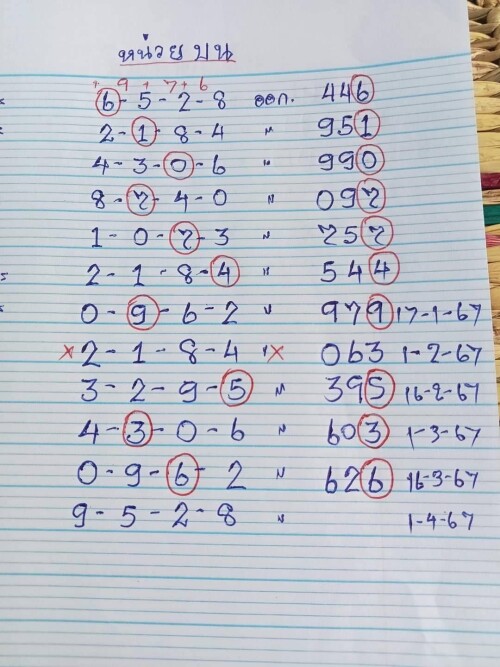 หน่วย บน
+ 9 + 7 + 6
6-5-2-8 ออก. 446
2-1-8-4 " 951
4-3-0-6 " 990
8-7-4-0 " 097
1-0-7-3 " 757
2-1-8-4 " 544
0-9-6-2 " 979 17-1-67
×2-1-8-4 "× 063 1-2-67
3-2-9-5 " 395 16-2-67
4-3-0-6 " 603 1-3-67
0-9-6-2 " 626 16-3-67
9-5-2-8 " 1-4-67